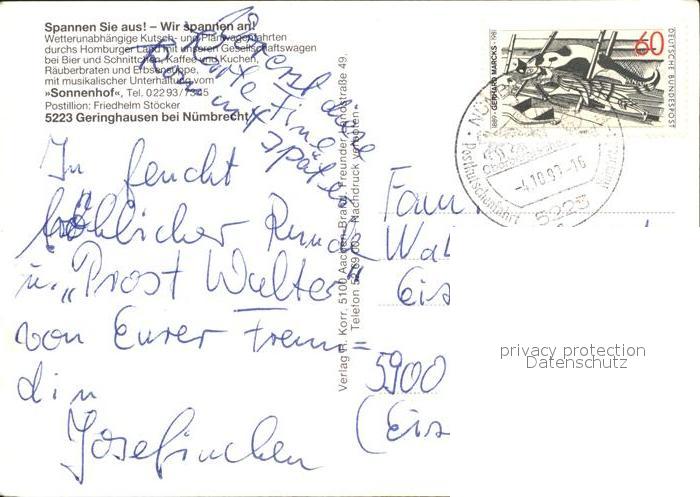 Spannen Sie aus! – Wir spannen an!
Wetterunabhängige Kutsch- und Planwagenfahrten
durchs Homburger Land mit unseren Gesellschaftswagen
bei Bier und Schnittchen, Kaffee und Kuchen,
Räuberbraten und Erbsensuppe,
mit musikalischer Unterhaltung vom
»Sonnenhof«, Tel. 02293/7345
Postillion: Friedhelm Stöcker
5223 Geringhausen bei Nümbrecht
diese
Karte
Tine
und
später
In feucht
fröhlicher Runde
u. „Prost Walter“
von Eurer Freun=
din
Josefinchen
Verlag H. Korr, 5100 Aachen-Brand, Freunder Landstraße 49.
Telefon Nachdruck verboten.
60
DEUTSCHE BUNDESPOST
1889 • GERHARD MARCKS • 1981
Postkutschenfahrt
-4.10.90-16
5223
Fam
Wal
Eis
5900
(Eis
privacy protection
Datenschutz